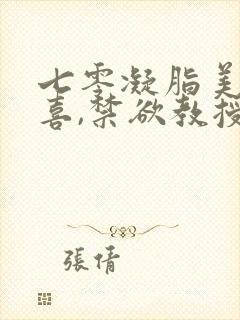 七零凝脂美
喜,禁欲教授
張倩